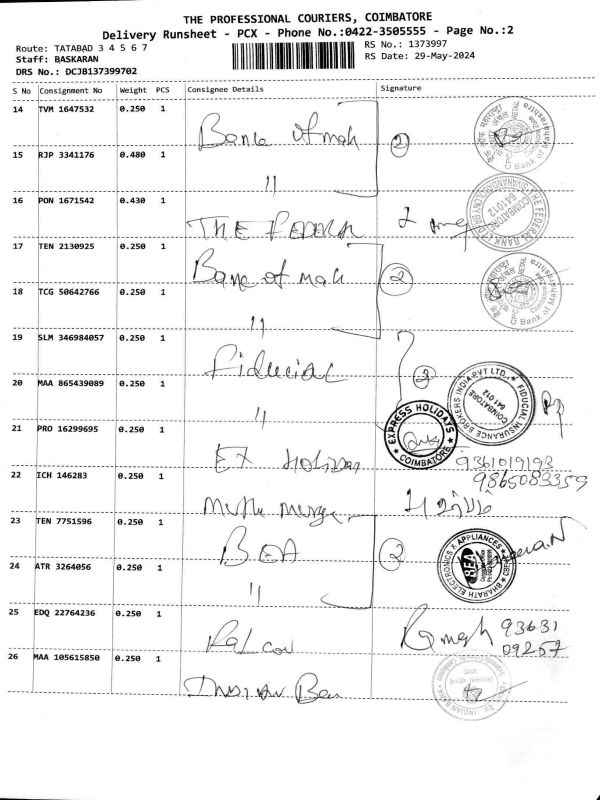 THE PROFESSIONAL COURIERS, COIMBATORE
Delivery Runsheet - PCX - Phone No.:0422-3505555 - Page No.:2
Route: TATABAD 3 4 5 6 7
RS No.: 1373997
Staff: BASKARAN
RS Date: 29-May-2024
DRS No.: DCJB137399702
S No Consignment No Weight PCS Consignee Details Signature
14 TVM 1647532 0.250 1 Bank of mah 2
15 RJP 3341176 0.480 1 "
16 PON 1671542 0.430 1 THE FEDERAL
17 TEN 2130925 0.250 1 Bank of mah 2
18 TCG 50642766 0.250 1 "
19 SLM 346984057 0.250 1 Fiducial 2
20 MAA 865439089 0.250 1 "
21 PRO 16299695 0.250 1 EX Holiday
9361019193
9865083359
22 ICH 146283 0.250 1
23 TEN 7751596 0.250 1 BEA 2
24 ATR 3264056 0.250 1 "
25 EDQ 22764236 0.250 1
93631
09257
26 MAA 105615850 0.250 1
Bank of Maharashtra
THE FEDERAL BANK LTD
COIMBATORE
641012
Bank of Maharashtra
FIDUCIAL INSURANCE BROKERS INDIA PVT LTD.,
COIMBATORE
641 012
EXPRESS HOLIDAYS
COIMBATORE
BHARATH ELECTRONICS & APPLIANCES
BEA
INDIAN BANK